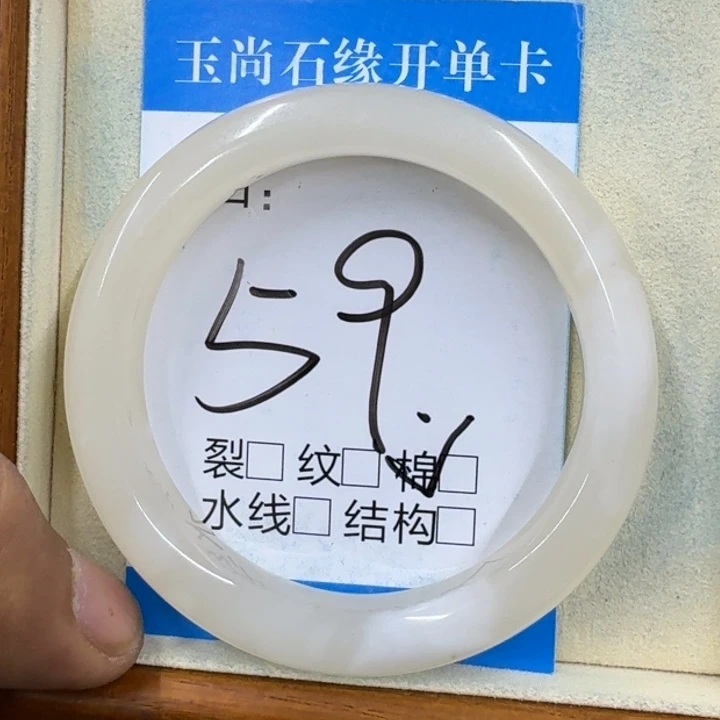 玉尚石缘开单卡
59.
裂□ 纹□ 棉□
水线□ 结构□